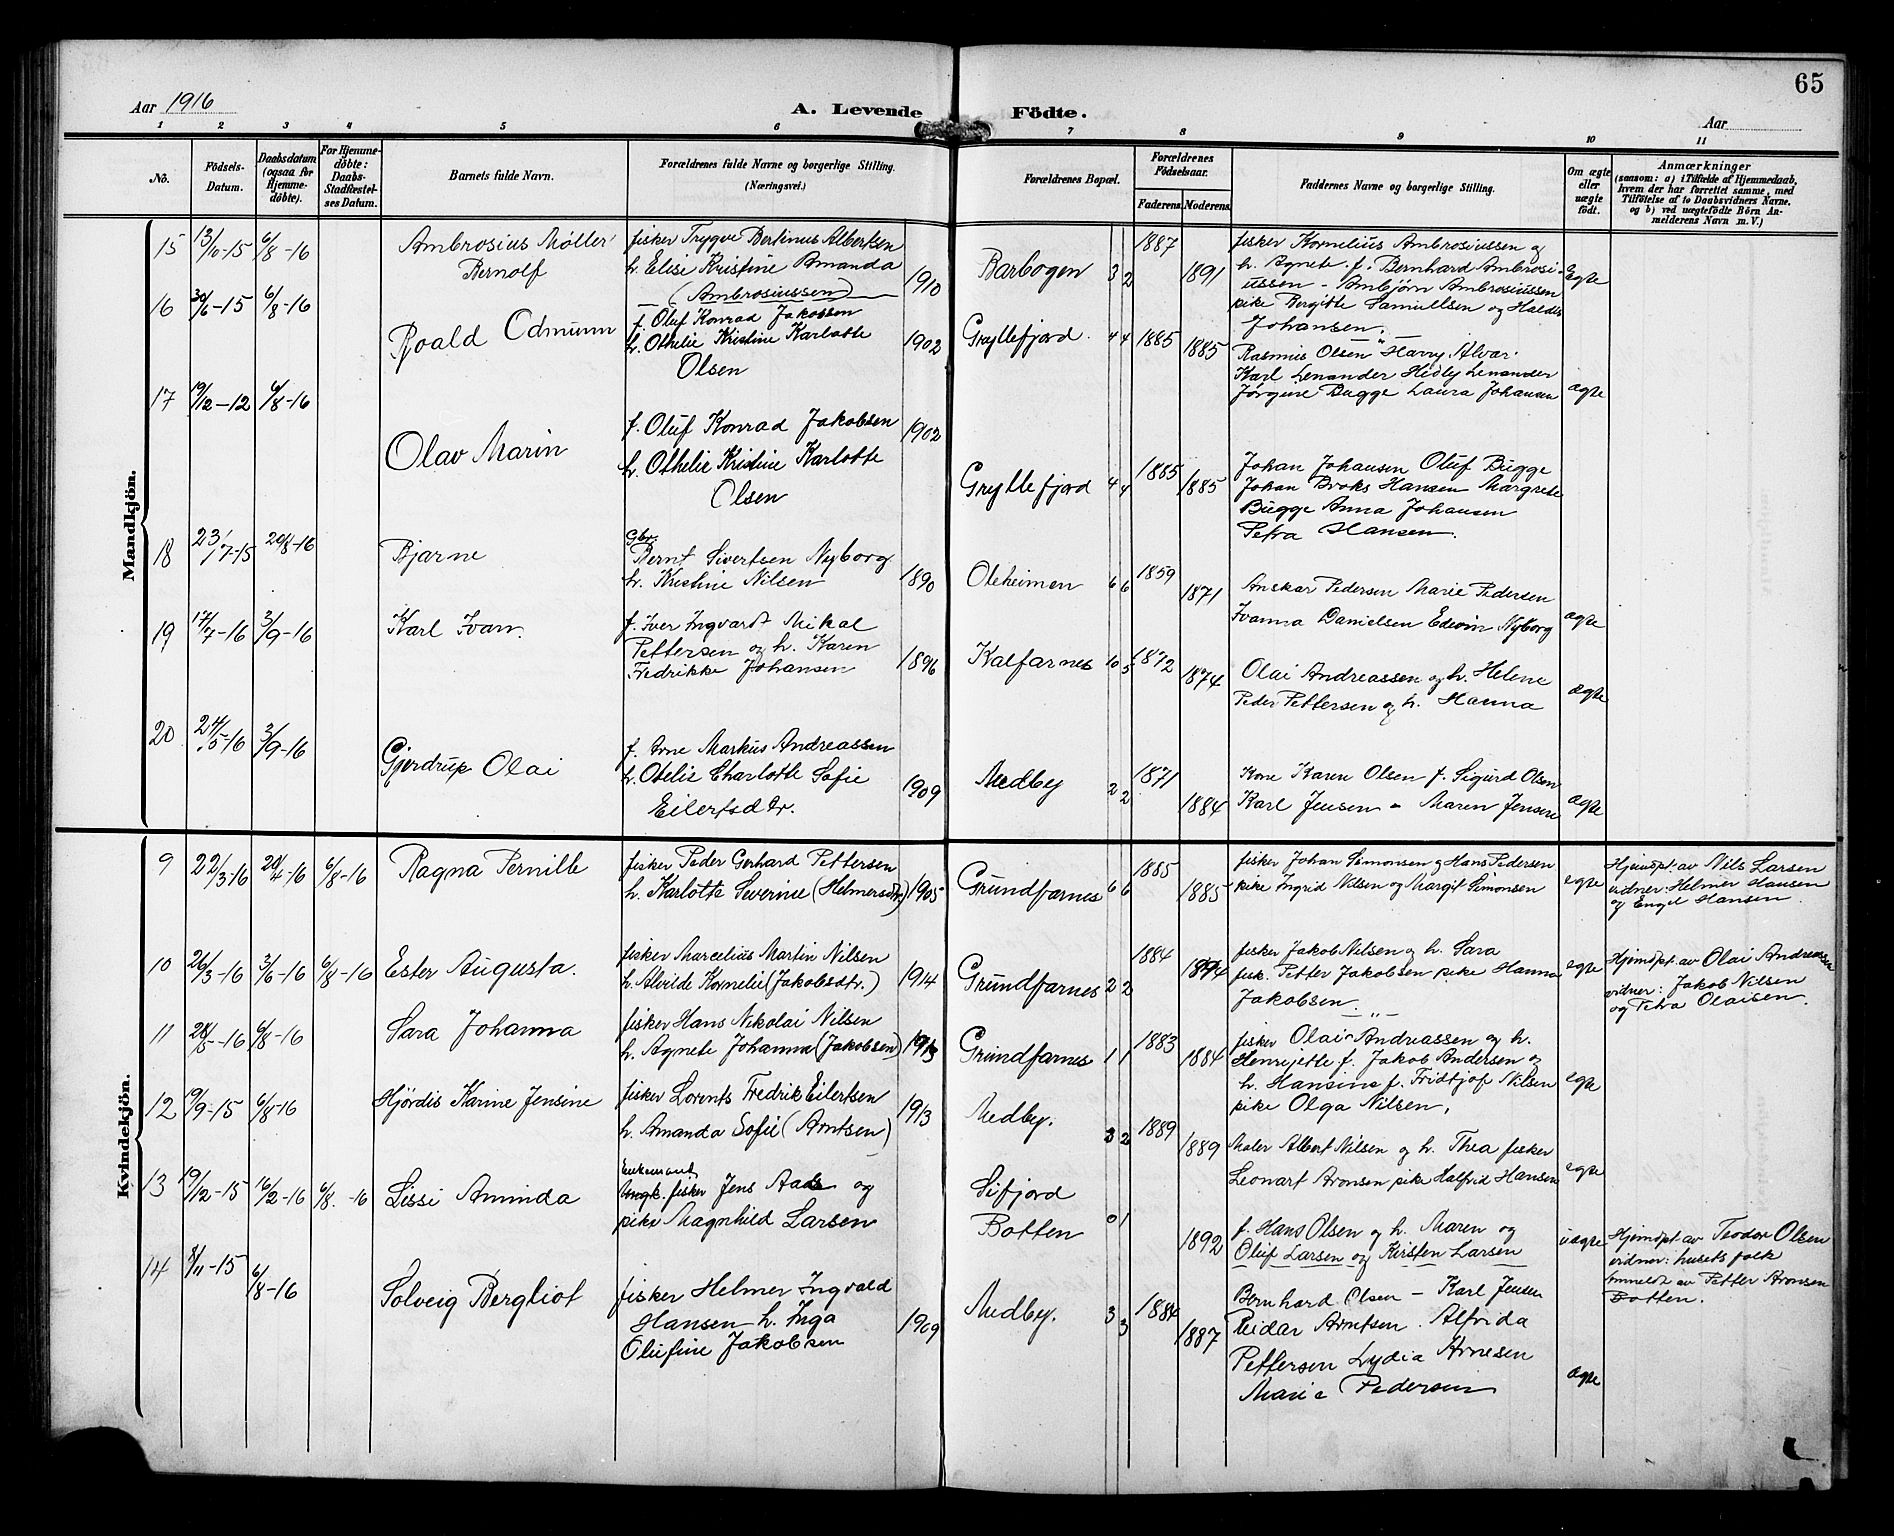 65
Aar 1916
A. Levende Födte.
Aar
1 2 3 4 5 6 7 8 9 10 11
No.
Födsels-
Datum.
Daabsdatum
(ogsaa for
Hjemme-
döbte).
For Hjemme-
døbte:
Daabs-
Stadfæstel-
ses Datum.
Barnets fulde Navn.
Forældrenes fulde Navne og borgerlige Stilling.
(Næringsvei.)
Forældrenes Bopæl.
Forældrenes
Födselsaar.
Faderens. Moderens.
Faddernes Navne og borgerlige Stilling.
Om ægte
eller
uægte
födt.
Anmærkninger
(saasom: a) i Tilfælde af Hjemmedaab,
hvem der har forrettet samme, med
Tilföielse af to Daabsvidners Navne.
og b) ved uægtefödte Börn An-
melderens Navn m. V.)
Mandkjön.
15 13/11-15 6/8-16
Ambrosius Möller
Bernolf
fisker Trygve Bertinus Albertsen
h. Elise Kristine Amanda
(Ambrosiussen)
1910
Barbogen 3 2
1887 1891
fisker Kornelius Ambrosiussen og
h. Agnete. f. Bernhard Ambrosi-
ussen - Ambjørn Ambrosiussen
pike Bergitte Samuelsen og Haldis
Johansen.
egte
16 30/6-15 6/8-16
Roald Edmunn
f. Oluf Konrad Jakobsen
h. Othelie Kristine Karlotte
Olsen
1902
Gryllefjord. 4 4
1885 1885
Rasmus Olsen " Harry Alvar.
Karl Lenander Hedly Lenander
Jørgine Bugge Laura Johansen
ægte
17 19/12-12 6/8-16
Olav Marin
f. Oluf Konrad Jakobsen
h. Othelie Kristine Karlotte
Olsen
1902
Gryllefjord 4 4
1885 1885
Johan Johansen Oluf Bugge
Johan Broks Hansen Margrete
Bugge Anna Johansen
Petra Hansen.
18 23/7-15 20/8-16
Bjarne
Gbr.
Bernt Sivertsen Nyborg
h. Kristine Nilsen
1890
Oleheimen 6 6
1859 1871
Anskar Pedersen Marie Pedersen
Ivanna Danielsen Edvin Nyborg
ægte
19 17/7-16 3/9-16
Karl Ivan.
f. Iver Ingvart Mikal
Pettersen og h. Karen
Fredrikke Johansen
1896
Kalfarnes 10 5
1872 1874
Olai Andreassen og h. Helene
Peder Pettersen og h. Hanna
ægte
20 24/5-16 3/9-16
Gjerdrup Olai
f. Arne Markus Andreassen
h. Otelie Charlotte Sofie
Eilertsdtr.
1909
Medby 2 2
1871 1884
Kone Karen Olsen f. Sigurd Olsen
Karl Jensen - Maren Jensen
ægte
Kvindekjön.
9 22/3-16 20/4-16 6/8-16
Ragna Pernille
fisker Peder Gerhard Pettersen
h. Karlotte Severine (Helmersdtr).
1905
Grundfarnes 6 6
1885 1885
fisker Johan Simonsen og Hans Pedersen
pike Ingrid Nilsen og Margit Simonsen
egte
Hjemdpt. av Nils Larsen
vidner: Helmer Hansen
og Engel Hansen.
10 26/3-16 3/6-16 6/8-16
Ester Augusta.
fisker Marcelius Martin Nilsen
h. Alvilde Kornelie (Jakobsdtr.)
1914
Grundfarnes 2 2
1884 1894
fisker Jakob Nilsen og h. Sara
fisk. Petter Jakobsen pike Hanna
Jakobsen.
egte
Hjemdpt av Olai Andreassen
vidner: Jakob Nilsen
og Petra Olaisen.
11 28/5-16 6/8-16
Sara Johanna
fisker Hans Nikolai Nilsen
h. Agnete Johanna (Jakobsen)
1913
Grundfarnes 1 1
1883 1884
fisker Olai Andreassen og h.
Henrijette f. Jakob Andersen og
h. Hansine f. Fridtjof Nilsen
pike Olga Nilsen.
egte
12 19/9-15 6/8-16
Hjördis Karine Jensine
fisker Lorents Fredrik Eilertsen
h. Amanda Sofie (Arntsen)
1913
Medby. 3 2
1889 1889
Maler Albert Nilsen og h. Thea fisker
Leonart Aronsen pike Halfrid Hansen
egte
13 19/12-15 16/2-16 6/8.-16
Lissi Aminda
Enkemand
Ungk. fisker Jens Aads og
pike Magnhild Larsen
Sifjord
Botten 0 1
1892
f. Hans Olsen og h. Maren og
Oluf Larsen og Kirsten Larsen
uægte
Hjemdpt av Teodor Olsen
vidner: husets folk
Anmeldt av Petter Aronsen
Botten.
14 8/11-15 6/8-16
Solveig Bergliot
fisker Helmer Ingvald
Hansen h. Inga
Olufine Jakobsen
1909
Medby. 3 3
1884 1887
Bernhard Olsen - Karl Jensen
Reidar Arntsen. Alfrida
Pettersen Lydia Arnesen
Marie Pedersen
ægte